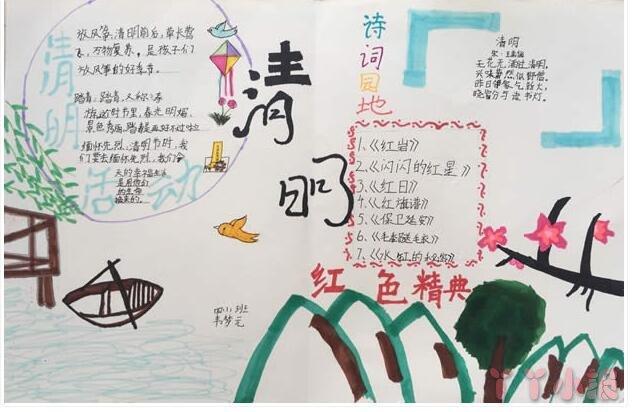 清明活动
放风筝,清明前后,草长莺
飞,万物复春,是孩子们
放风筝的好季节。
踏青,踏青,又称:春
游。此时节里,春光明媚、
景色秀丽,踏青是再好不过啦
缅怀先烈,清明节时,我
们要去缅怀先烈,我们今
天的幸福生活
是用他们
的生命
换来的。
清明
四小班
韦梦元
诗词园地
1、《红岩》
2、《闪闪的红星》
3、《红日》
4、《红旗谱》
5、《保卫延安》
6、《毛泰隧毛衣》
7、《水缸的秘密》
红色精典
清明
宋·王禹偁
无花无酒过清明,
兴味萧然似野僧。
昨日邻家乞新火,
晓窗分与读书灯。
丫丫小报